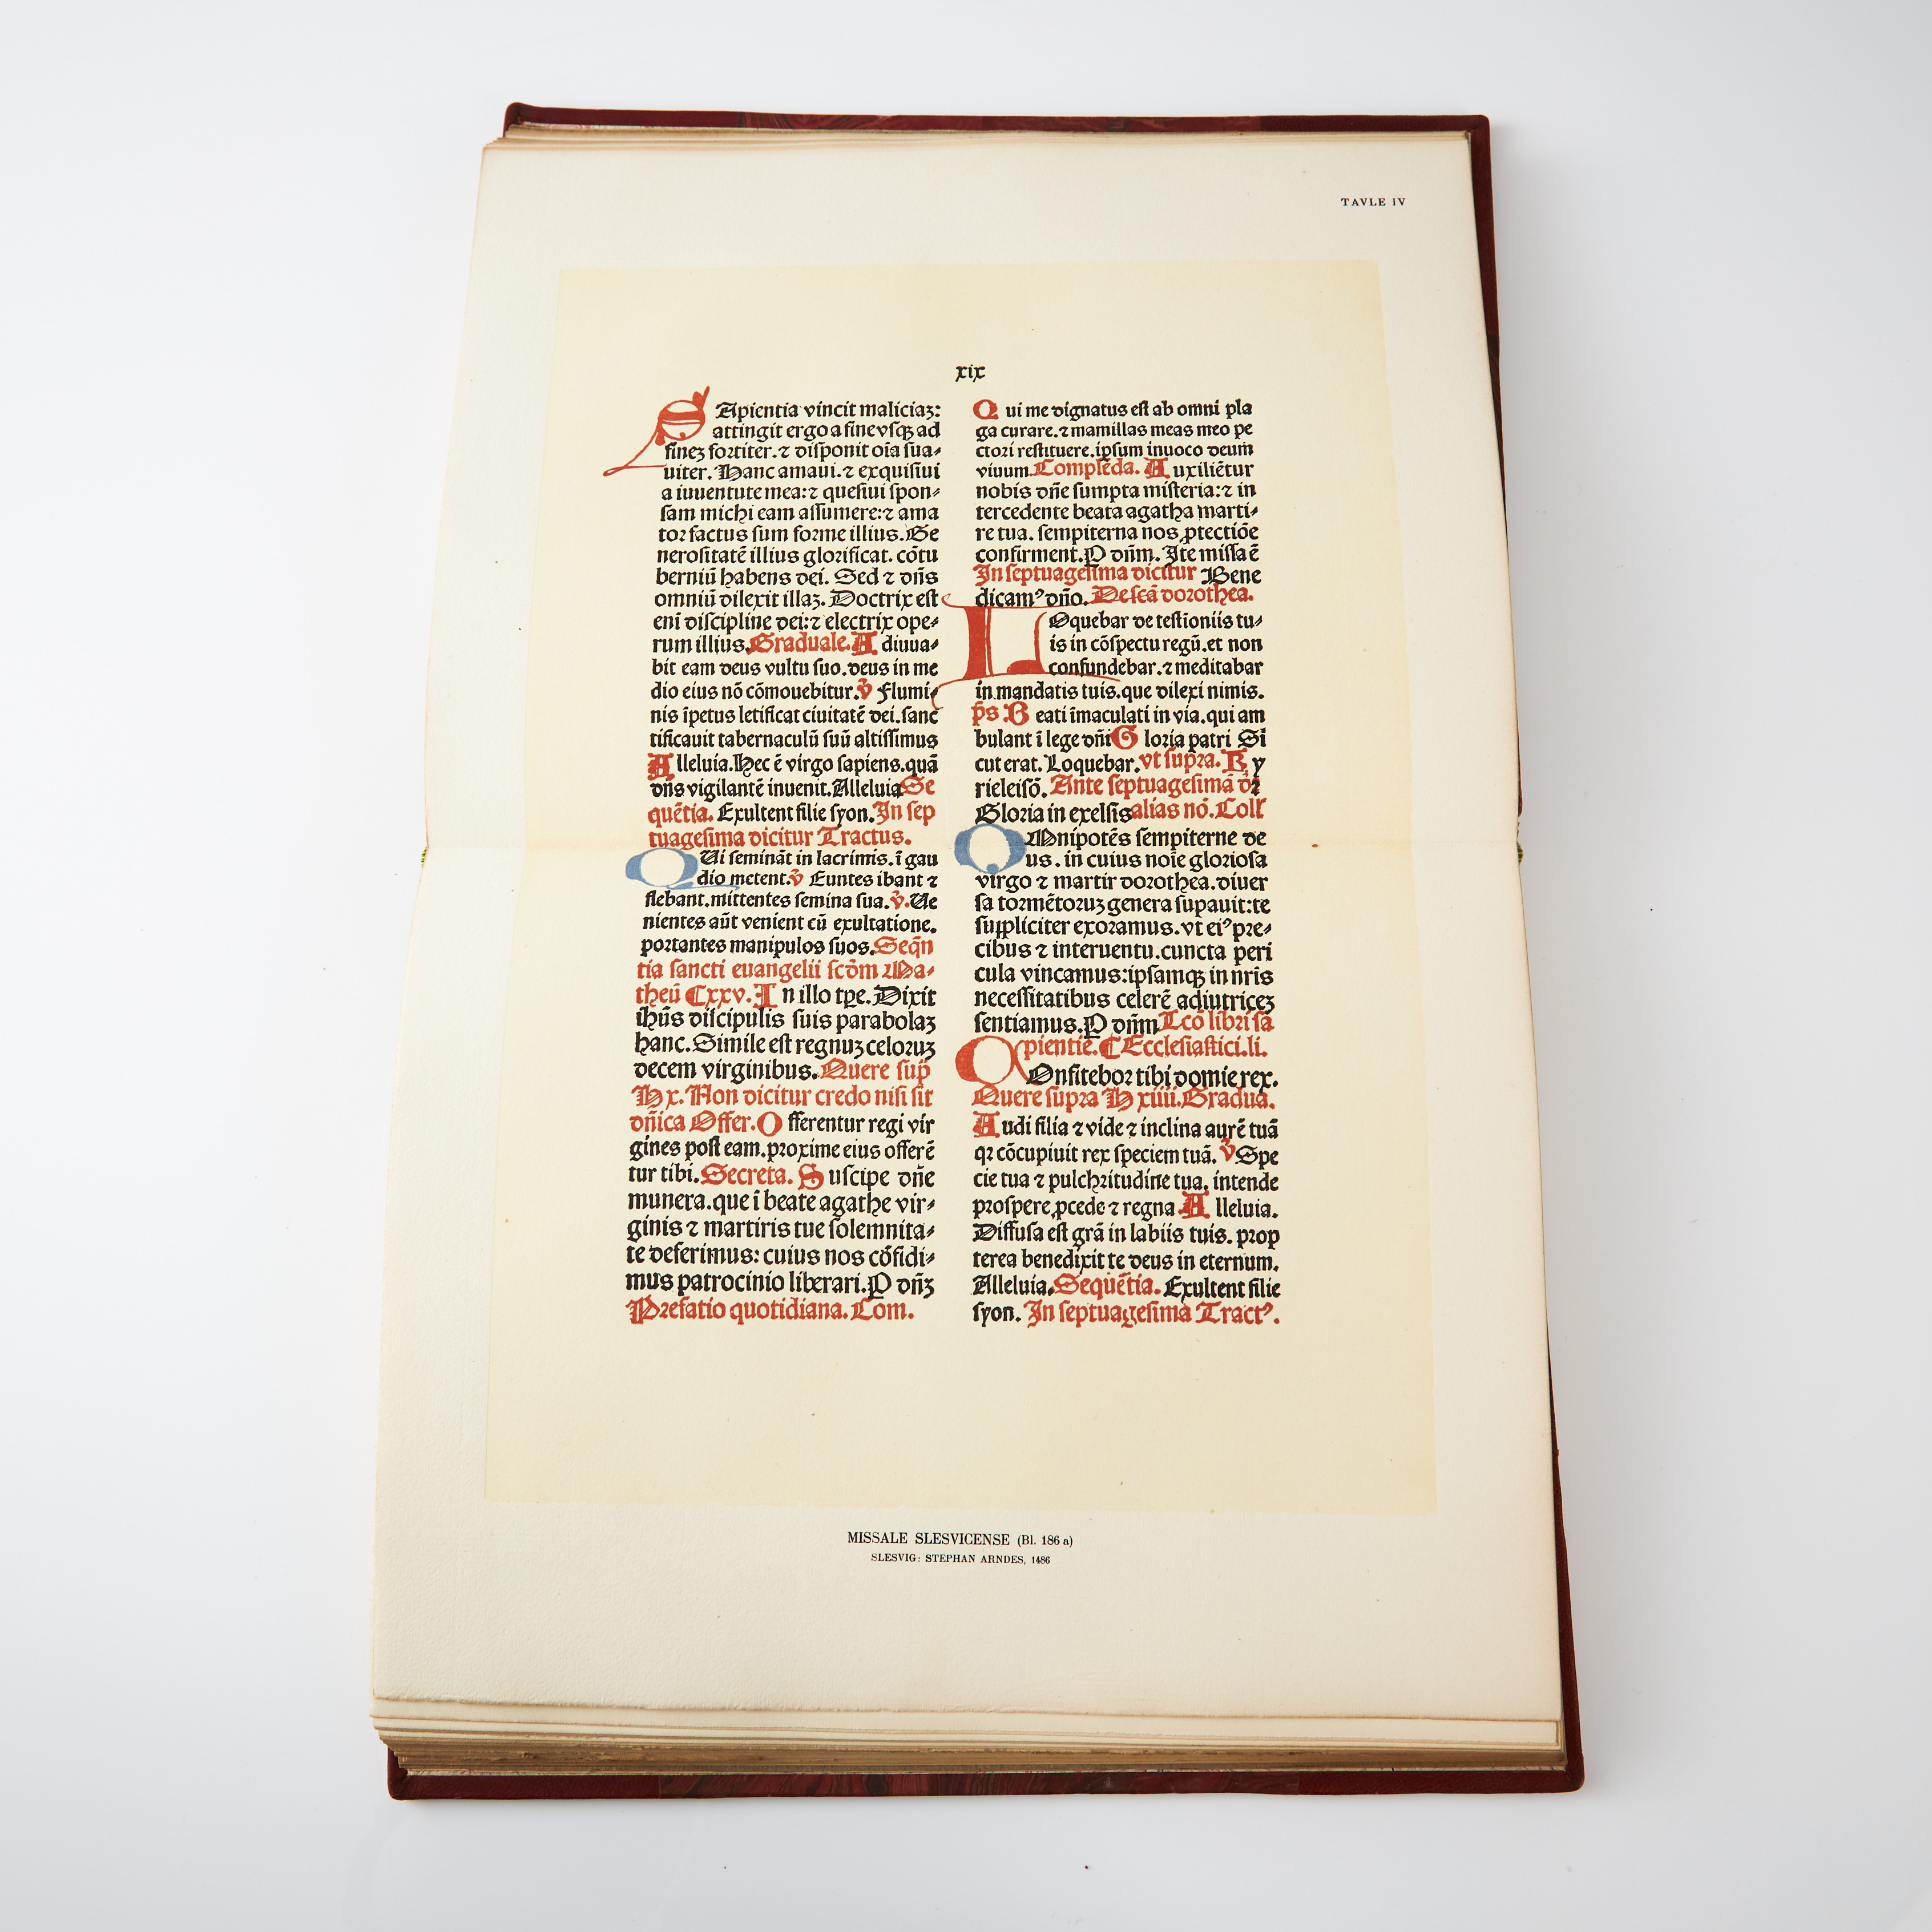 TAVLE IV
xix
SApientia vincit maliciaz:
attingit ergo a fine vsqz ad
finez fortiter. ⁊ disponit oīa sua⸗
uiter. Hanc amaui. ⁊ exquisiui
a iuuentute mea: ⁊ quesiui spon⸗
sam michi eam assumere: ⁊ ama
tor factus sum forme illius. Ge
nerositatē illius glorificat. cōtu
berniū habens dei. Sed ⁊ dn̄s
omniū dilexit illaz. Doctrix est
eni discipline dei: ⁊ electrix ope⸗
rum illius. Graduale. A diuua⸗
bit eam deus vultu suo. deus in me
dio eius nō cōmouebitur. v̄ Flumi⸗
nis īpetus letificat ciuitatē dei. sanc
tificauit tabernaculū suū altissimus
A lleluia. Hec ē virgo sapiens. quā
dn̄s vigilantē inuenit. Alleluia Se
quētia. Exultent filie syon. In sep
tuagesima dicitur Tractus.
QUi semināt in lacrimis. ī gau
dio metent. v̄ Euntes ibant ⁊
flebant. mittentes semina sua. v̄. Ue
nientes aūt venient cū exultatione.
portantes manipulos suos. Seqn̄
tia sancti euangelii scōm Ma⸗
theū Cxxv. I n illo tpe. Dixit
ihūs discipulis suis parabolaz
hanc. Simile est regnuz celoruz
decem virginibus. Quere sup̄
H x. Non dicitur credo nisi sit
dn̄ica Offer. O fferentur regi vir
gines post eam. proxime eius offerē
tur tibi. Secreta. S uscipe dn̄e
munera. que ī beate agathe vir⸗
ginis ⁊ martiris tue solemnita⸗
te deferimus: cuius nos cōfidi⸗
mus patrocinio liberari. P dn̄z
Prefatio quotidiana. Com.
Q ui me dignatus est ab omni pla
ga curare. ⁊ mamillas meas meo pe
ctori restituere. ipsum inuoco deum
viuum. Complēda. A uxiliētur
nobis dn̄e sumpta misteria: ⁊ in
tercedente beata agatha marti⸗
re tua. sempiterna nos ꝓtectiōe
confirment. P dn̄m. Ite missa ē
In septuagesima dicitur Bene
dicamꝰ dn̄o. De scā dorothea.
LOquebar de testioniis tu⸗
is in cōspectu regū. et non
confundebar. ⁊ meditabar
in mandatis tuis. que dilexi nimis.
p̄s B eati īmaculati in via. qui am
bulant ī lege dn̄i G loria patri Si
cut erat. Loquebar. vt supra. K y
rieleisō. Ante septuagesimā dr̄
Gloria in exelsis alias nō. Coll'
OMnipotēs sempiterne de
us. in cuius noīe gloriosa
virgo ⁊ martir dorothea. diuer
sa tormētoruz genera supauit: te
suppliciter exoramus. vt eiꝰ pre⸗
cibus ⁊ interuentu. cuncta peri
cula vincamus: ipsamqz in nr̄is
necessitatibus celerē adiutricez
sentiamus. P dn̄m Lcō libri sa
pientie. C Ecclesiastici. li.
COnfitebor tibi domie rex.
Quere supra H xiiii. Gradua.
A udi filia ⁊ vide ⁊ inclina aurē tuā
qꝛ cōcupiuit rex speciem tuā. v̄ Spe
cie tua ⁊ pulchritudine tua. intende
prospere ꝓcede ⁊ regna A lleluia.
Diffusa est grā in labiis tuis. prop
terea benedixit te deus in eternum.
Alleluia. Sequētia. Exultent filie
syon. In septuagesima Tractꝰ.
MISSALE SLESVICENSE (Bl. 186 a)
SLESVIG: STEPHAN ARNDES, 1486